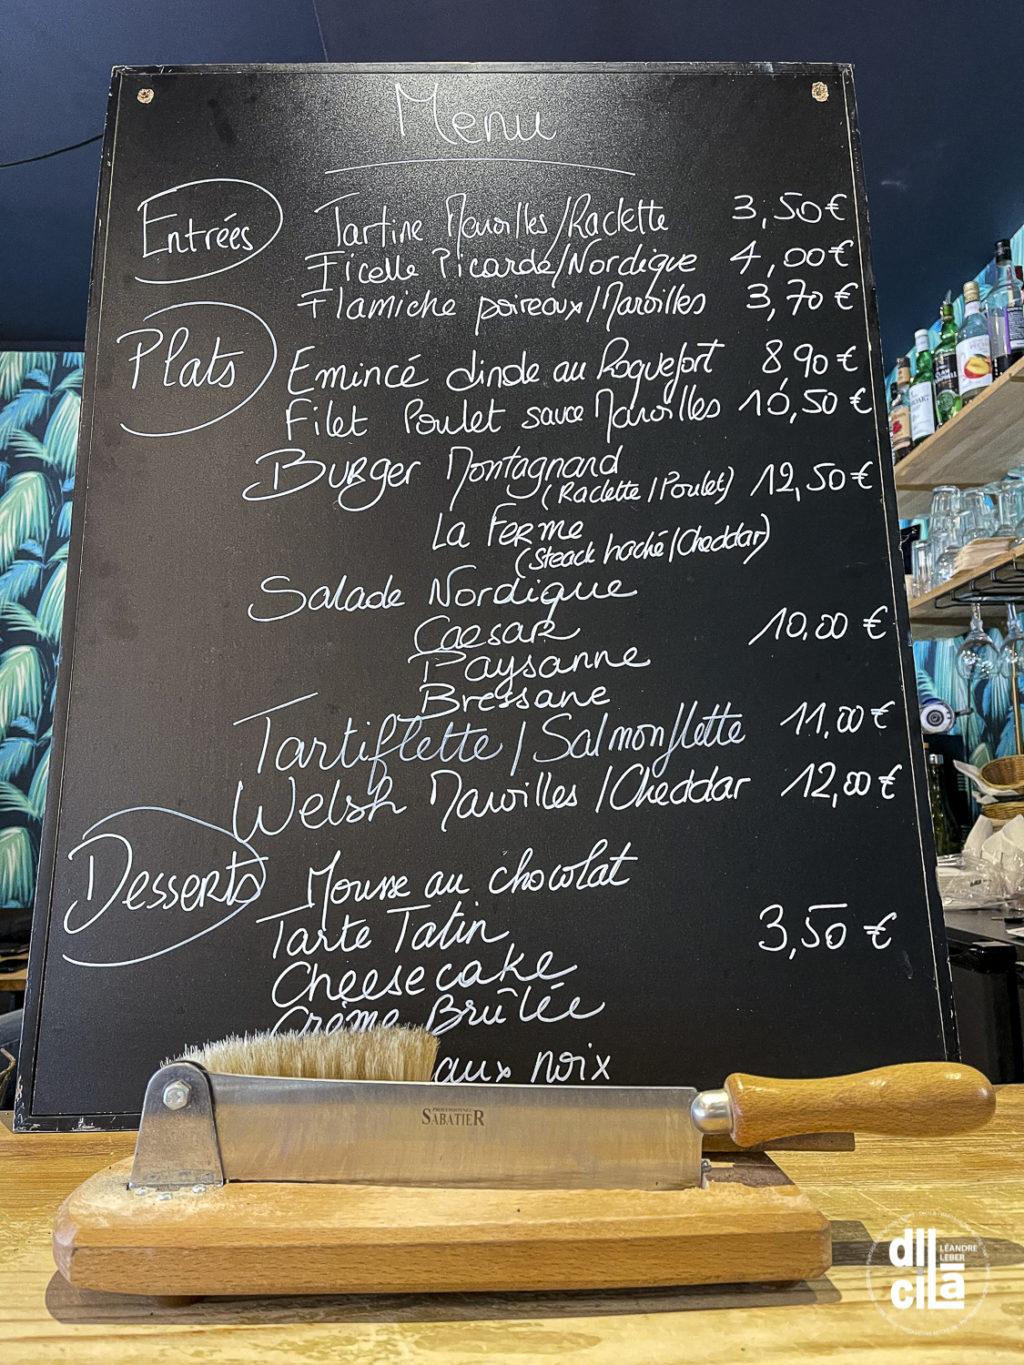 Menu
Entrées
Tartine Maroilles/Raclette 3,50€
Ficelle Picarde/Nordique 4,00€
Flamiche poireaux/Maroilles 3,70€
Plats
Emincé dinde au Roquefort 8,90€
Filet Poulet sauce Maroilles 10,50€
Burger Montagnard
(Raclette/Poulet) 12,50€
La Ferme
(Steack haché/Cheddar)
Salade Nordique
Caesar 10,00€
Paysanne
Bressane
Tartiflette/Salmonflette 11,00€
Welsh Maroilles/Cheddar 12,00€
Desserts
Mousse au chocolat
Tarte Tatin 3,50€
Cheesecake
Crème Brûlée
aux noix
SABATIER
dil
LÉANDRE
LEBER
cila